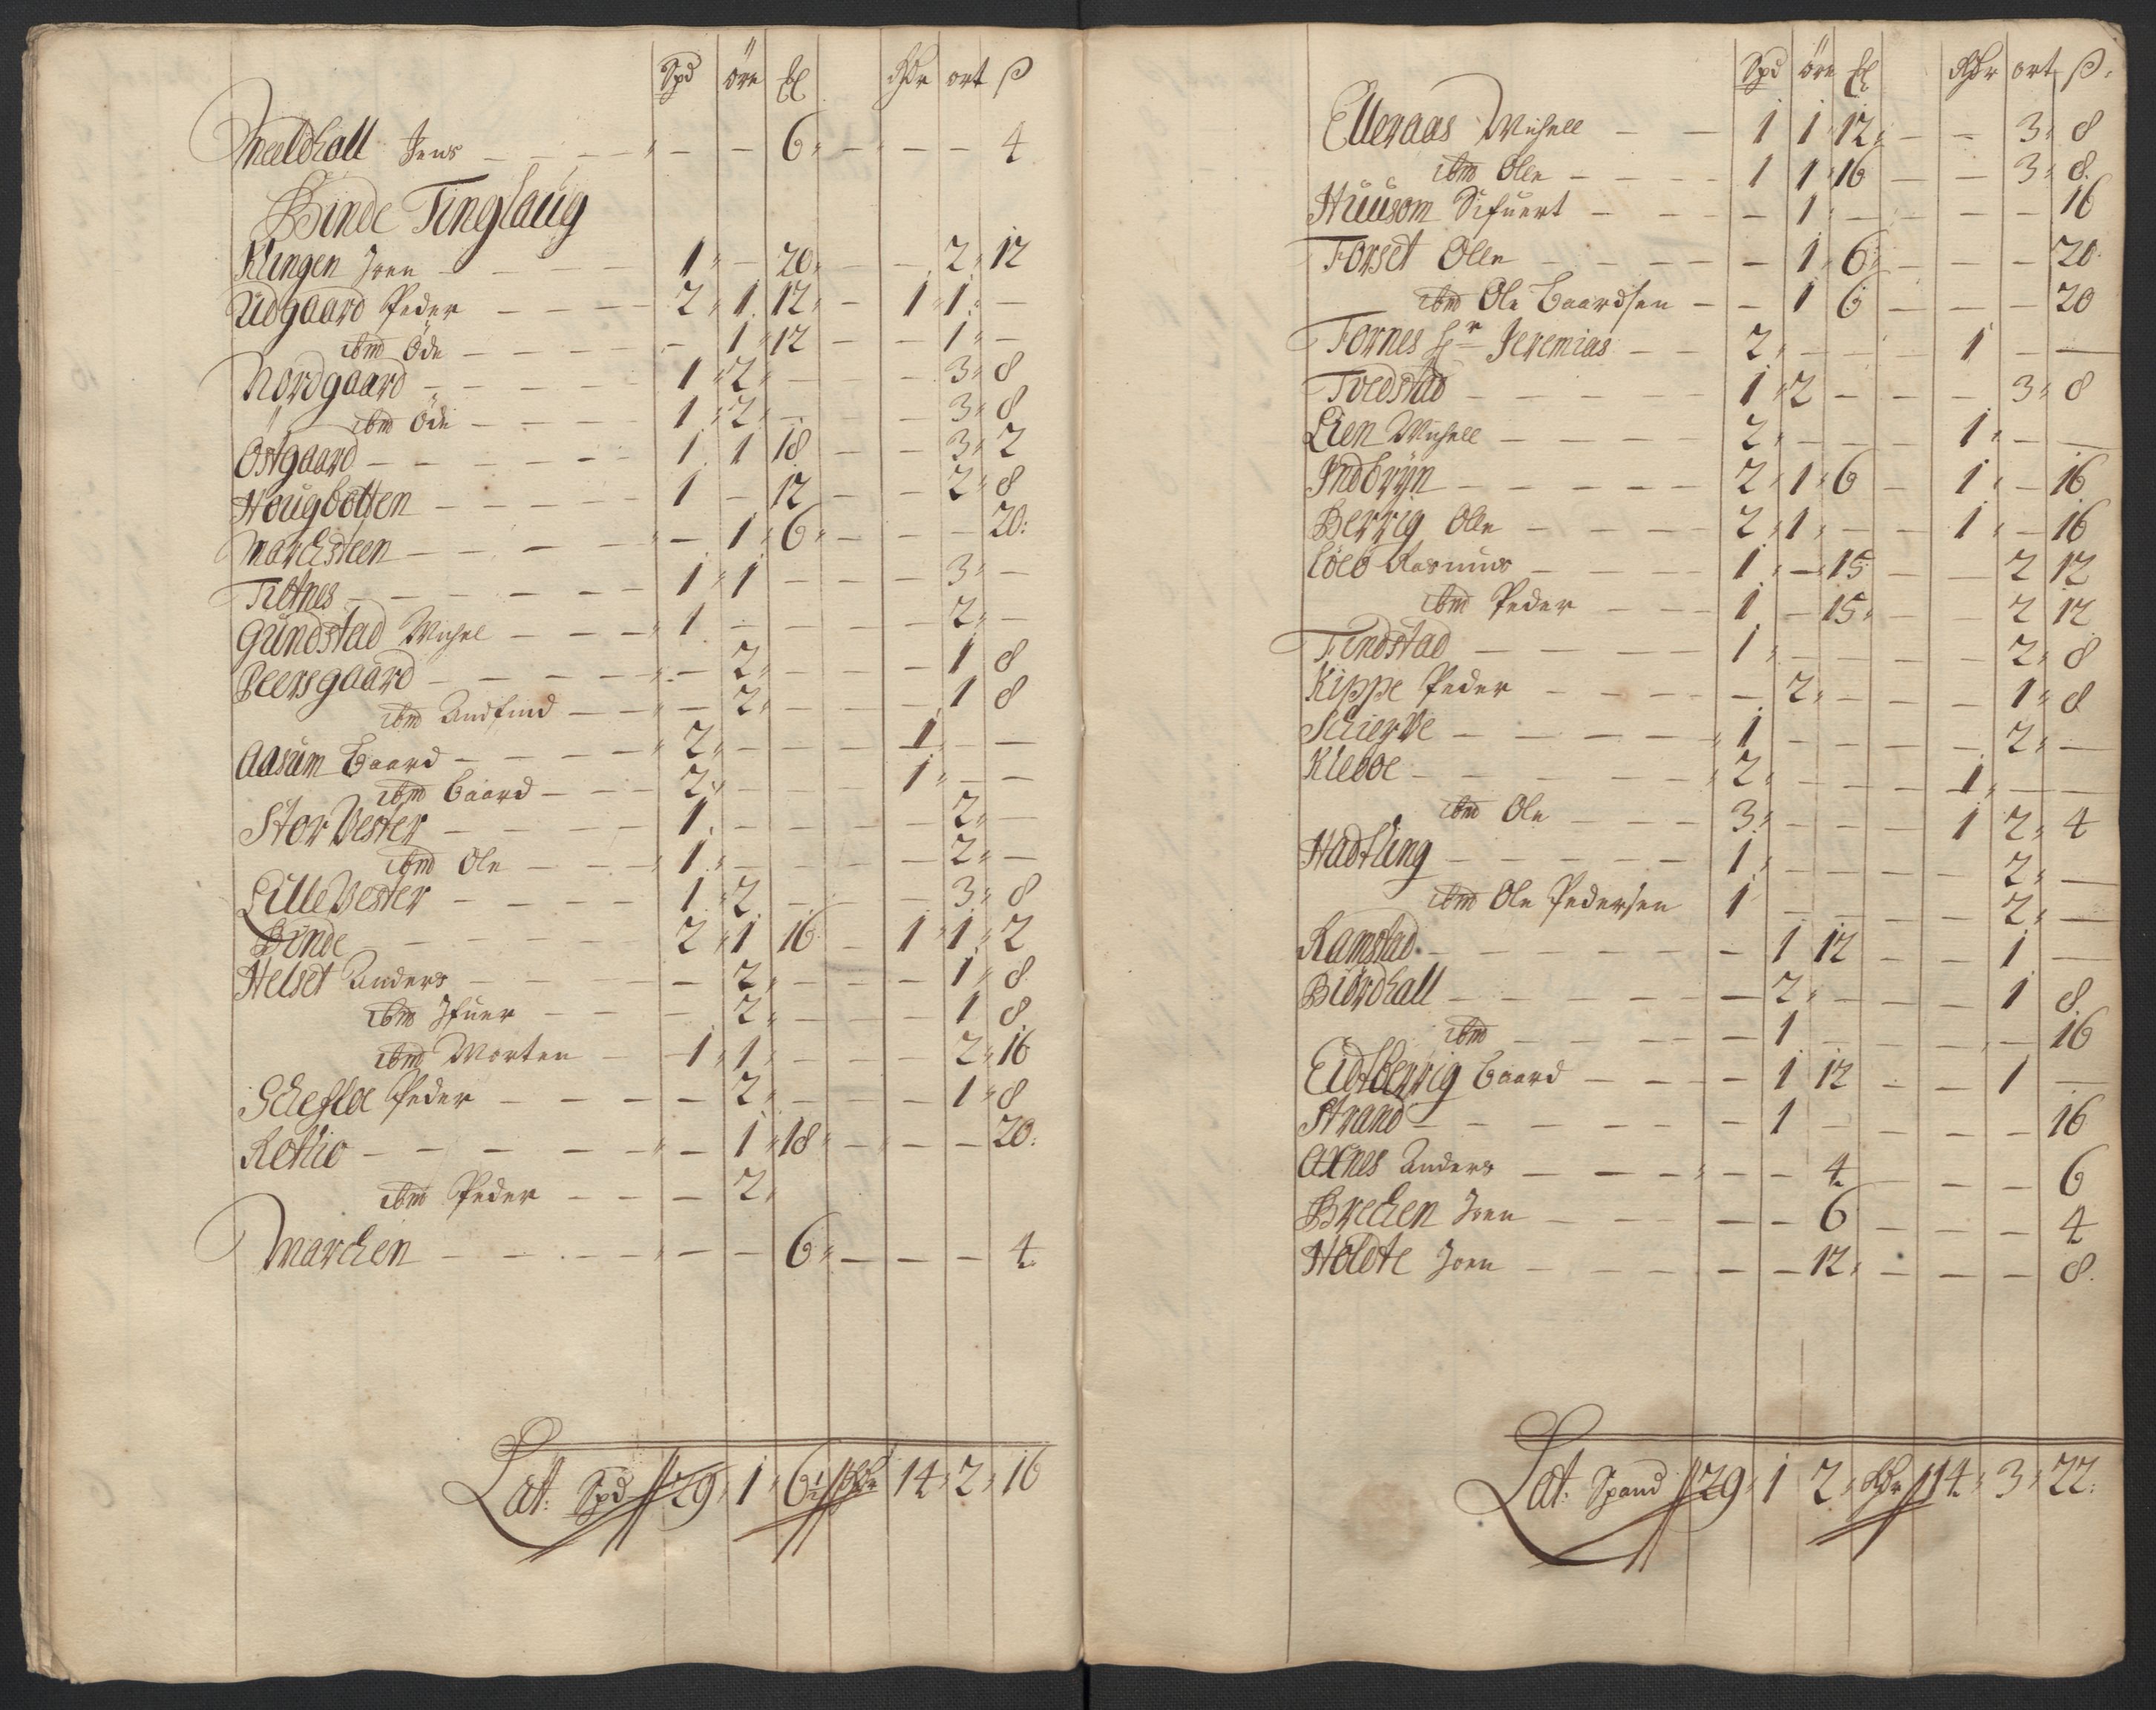 Spd öre Rdr ort β
Meeldhall Jens – – – – – 6 – – – 4
Binde Tinglaug
Klingen Joen – – – 1 – 20 – – 2 12
Udgaard Peder – – – 2 1 12 – 1 1 –
ibm Öde – – – – 1 12 – – 1 –
Nordgaard – – – 1 2 – – – 3 8
ibm Öde – – – 1 2 – – – 3 8
Östgaard – – – 1 1 18 – – 3 2
Hougbotten – – – 1 – 12 – – 2 8
Marchsteen – – – – 1 6 – – – 20
Tiltnes – – – 1 1 – – – 3 –
Gundstad Michel – – – 1 – – – – 2 –
Peersgaard – – – – 2 – – – 1 8
ibm Andfind – – – 2 – – – 1 8
Aasum Baard – – – 2 – – – 1 – –
ibm Baard – – – 2 – – – 1 – –
Stor Vester – – – 1 – – – – 2 –
ibm Ole – – – 1 – – – – 2 –
Lille Vester – – – 1 2 – – – 3 8
Binde – – – 2 1 16 – 1 1 2
Helset Anders – – – – 2 – – – 1 8
ibm Ifuer – – – 2 – – – 1 8
ibm Morten – 1 1 – – – 2 16
Schefloe Peder – – – – 2 – – – 1 8
Rotlio – – – – 1 18 – – – 20
ibm Peder – – – 2
Marchen – – – – – 6 – – – 4
Lat: Spd 29 1 6½ Rdr 14 2 16
Spd öre Rdr ort β
Elleraas Michell – – 1 1 12 – – 3 8
ibm Olle – – – 1 1 16 – – 3 8
Huusom Sifuert – – – – 1 – – – – 16
Forset Olle – – – – 1 6 – – – 20
ibm Ole Baardsen – – 1 6 – – – 20
Fornes Hr Jeremias – – 2 – – – 1 – –
Tvedstad – – – 1 2 – – – 3 8
Lien Michell – – – 2 – – – 1 – –
Indbryn – – – 2 1 6 – 1 – 16
Berrig Olle – – – 2 1 – – 1 – 16
Löeb Rasmus – – – 1 – 15 – – 2 12
ibm Peder – – – 1 – 15 – – 2 12
Findstad – – – 1 – – – – 2 8
Kippe Peder – – – – 2 – – – 1 8
Schierve – – – 1 – – – – 2 –
Kleboe – – – 2 – – – 1 – –
ibm Ole – – – 3 – – – 1 2 4
Hadtling – – – 1 – – – – 2 –
ibm Ole Pedersen 1 – – – – 2 –
Ramstad – – – – 1 12 – – 1 –
Biördhall – – – – 2 – – – 1 8
ibm – – – – 1 – – – – 16
Eidtberrig Baard – – – – 1 12 – – 1 –
Strand – – – – 1 – – – – 16
Axnes Anders – – – – – 4 – – – 6
Brechen Joen – – – – – 6 – – – 4
Holdte Joen – – – – – 12 – – – 8
Lat: Spand 29 1 2 Rdr 14 3 22